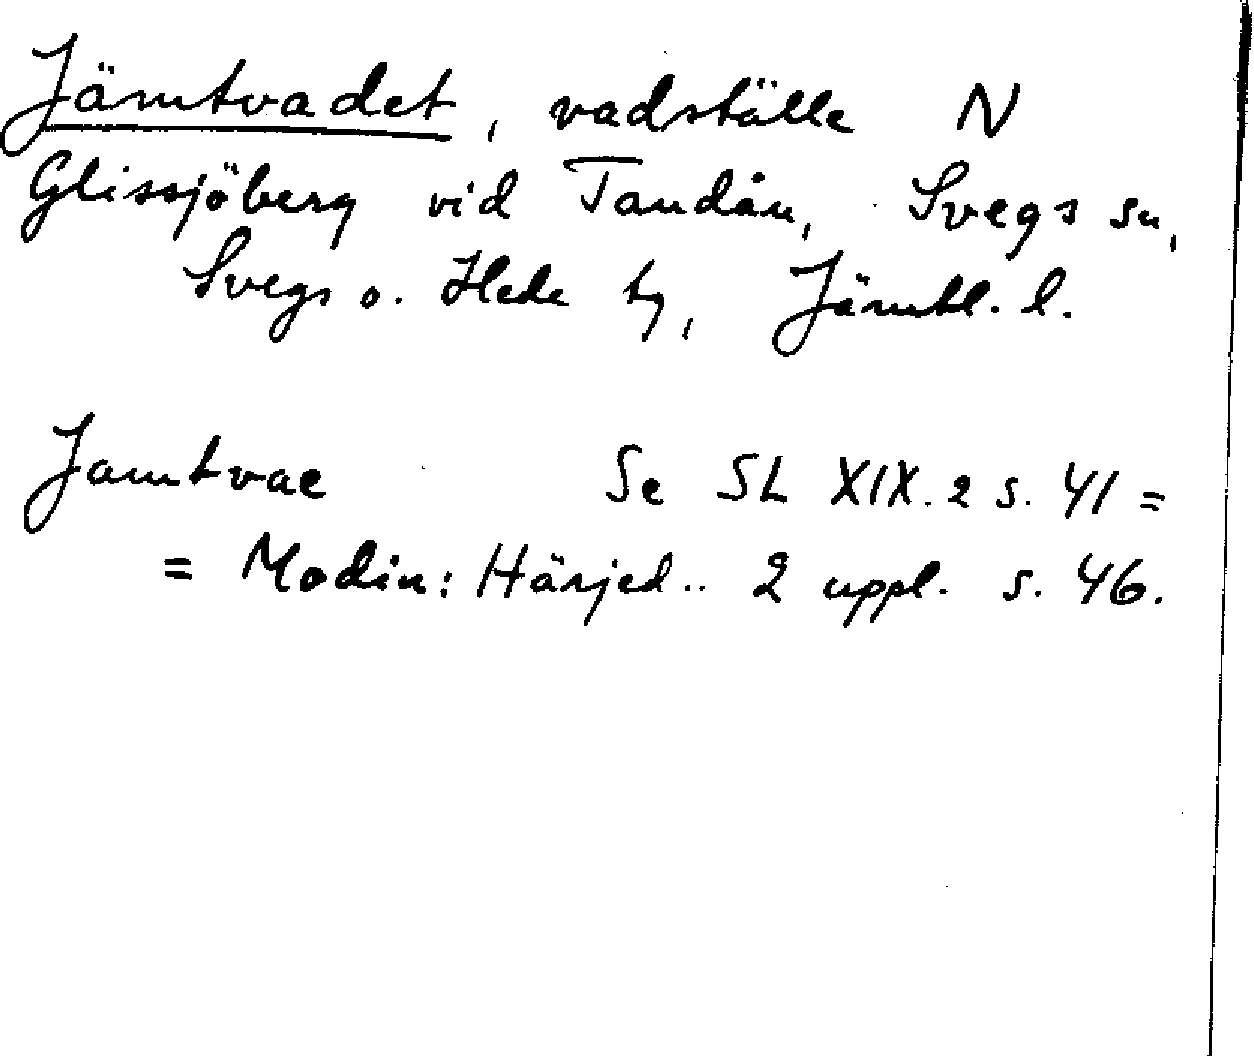 Jämtvadet, vadställe N
Glissjöberg vid Tandån, Svegs sn,
Svegs o. Hede tg, Jämtl. l.
Jamtvae Se SL XIX. 2 s. 41 =
= Modin: Härjed.. 2 uppl. s. 46.